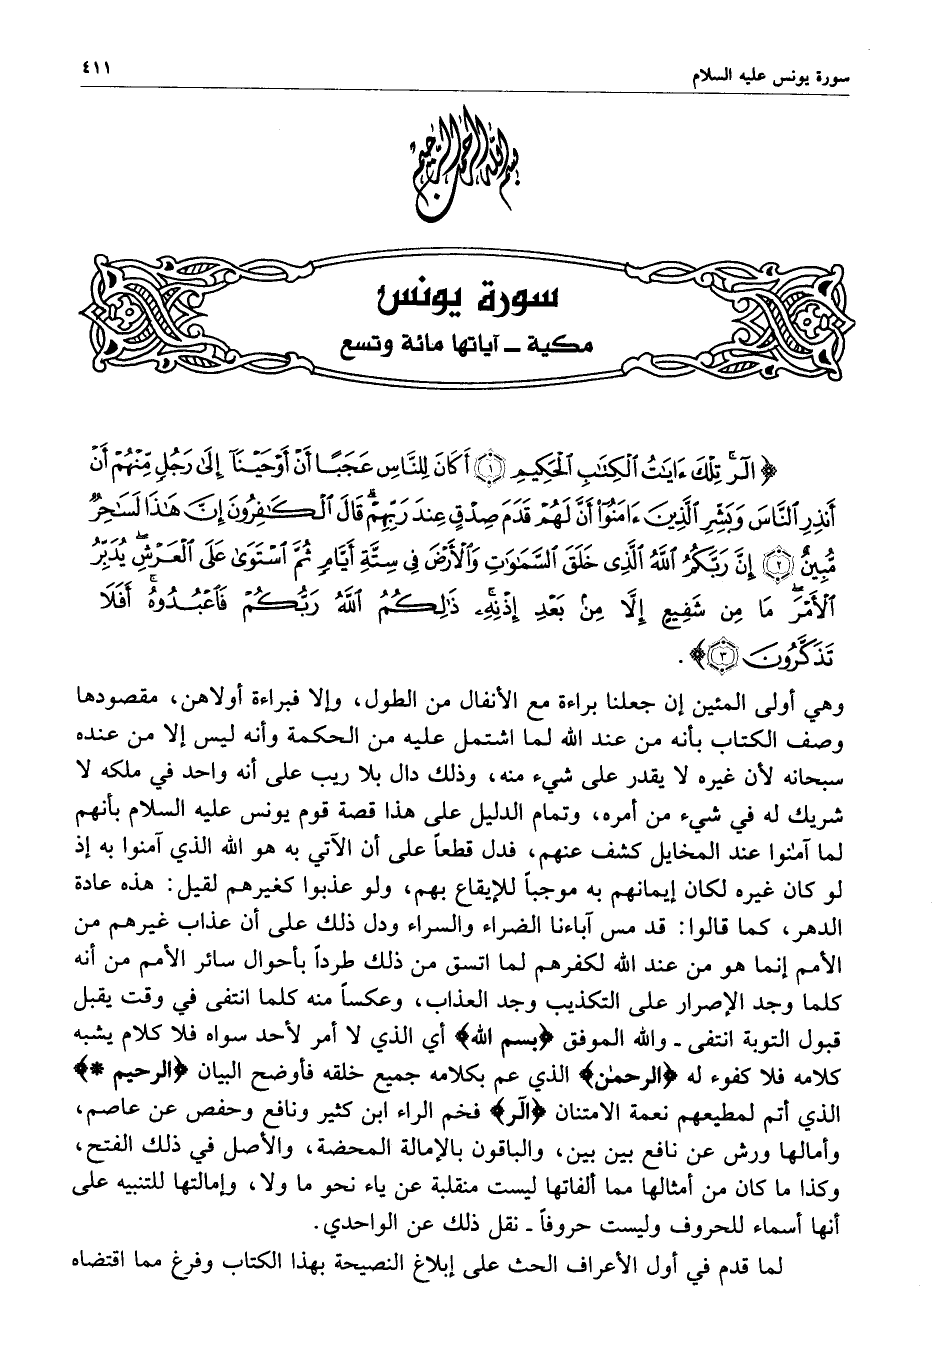 سورة يونس عليه السلام
٤١١
بسم الله الرحمن الرحيم
سورة يونس
مكية ــ آياتها مائة وتسع
﴿ الٓرۚ تِلْكَ ءَايَٰتُ ٱلْكِتَٰبِ ٱلْحَكِيمِ ﴿١﴾ أَكَانَ لِلنَّاسِ عَجَبًا أَنْ أَوْحَيْنَآ إِلَىٰ رَجُلٍ مِّنْهُمْ أَنْ
أَنذِرِ ٱلنَّاسَ وَبَشِّرِ ٱلَّذِينَ ءَامَنُوٓا۟ أَنَّ لَهُمْ قَدَمَ صِدْقٍ عِندَ رَبِّهِمْۗ قَالَ ٱلْكَٰفِرُونَ إِنَّ هَٰذَا لَسَٰحِرٌ
مُّبِينٌ ﴿٢﴾ إِنَّ رَبَّكُمُ ٱللَّهُ ٱلَّذِى خَلَقَ ٱلسَّمَٰوَٰتِ وَٱلْأَرْضَ فِى سِتَّةِ أَيَّامٍ ثُمَّ ٱسْتَوَىٰ عَلَى ٱلْعَرْشِۖ يُدَبِّرُ
ٱلْأَمْرَۖ مَا مِن شَفِيعٍ إِلَّا مِنۢ بَعْدِ إِذْنِهِۦۚ ذَٰلِكُمُ ٱللَّهُ رَبُّكُمْ فَٱعْبُدُوهُۚ أَفَلَا
تَذَكَّرُونَ ﴿٣﴾ ﴾ .
وهي أولى المئين إن جعلنا براءة مع الأنفال من الطول، وإلا فبراءة أولاهن، مقصودها
وصف الكتاب بأنه من عند الله لما اشتمل عليه من الحكمة وأنه ليس إلا من عنده
سبحانه لأن غيره لا يقدر على شيء منه، وذلك دال بلا ريب على أنه واحد في ملكه لا
شريك له في شيء من أمره، وتمام الدليل على هذا قصة قوم يونس عليه السلام بأنهم
لما آمنوا عند المخايل كشف عنهم، فدل قطعاً على أن الآتي به هو الله الذي آمنوا به إذ
لو كان غيره لكان إيمانهم به موجباً للإيقاع بهم، ولو عذبوا كغيرهم لقيل: هذه عادة
الدهر، كما قالوا: قد مس آباءنا الضراء والسراء ودل ذلك على أن عذاب غيرهم من
الأمم إنما هو من عند الله لكفرهم لما اتسق من ذلك طرداً بأحوال سائر الأمم من أنه
كلما وجد الإصرار على التكذيب وجد العذاب، وعكساً منه كلما انتفى في وقت يقبل
قبول التوبة انتفى ـ والله الموفق ﴿بسم الله﴾ أي الذي لا أمر لأحد سواه فلا كلام يشبه
كلامه فلا كفوء له ﴿الرحمٰن﴾ الذي عم بكلامه جميع خلقه فأوضح البيان ﴿الرحيم *﴾
الذي أتم لمطيعهم نعمة الامتنان ﴿الٓر﴾ فخم الراء ابن كثير ونافع وحفص عن عاصم،
وأمالها ورش عن نافع بين بين، والباقون بالإمالة المحضة، والأصل في ذلك الفتح،
وكذا ما كان من أمثالها مما ألفاتها ليست منقلبة عن ياء نحو ما ولا، وإمالتها للتنبيه على
أنها أسماء للحروف وليست حروفاً ـ نقل ذلك عن الواحدي.
لما قدم في أول الأعراف الحث على إبلاغ النصيحة بهذا الكتاب وفرغ مما اقتضاه